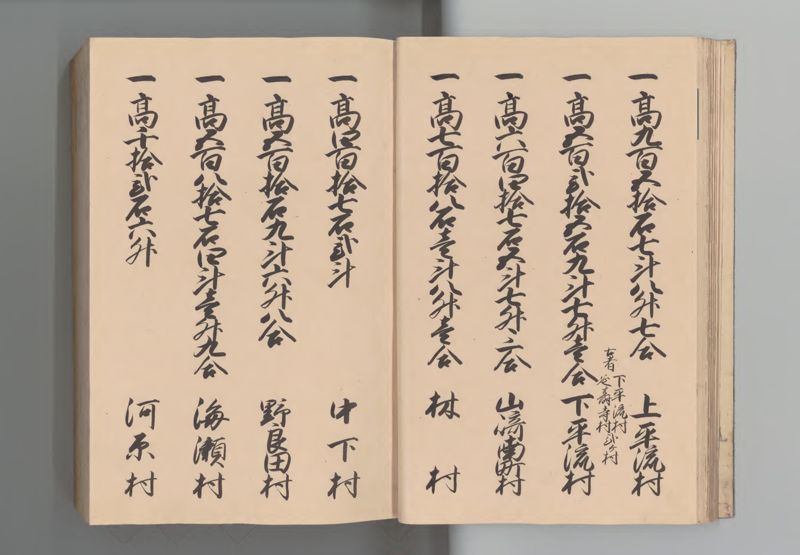 一高九百五拾石七斗八升七合 上平流村
一高五百弐拾五石九斗七升壱合 下平流村
古者 下平流村
延寿寺村弐ケ村
一高六百四拾七石五斗七升二合 山崎南町村
一高七百拾八石壱斗八升壱合 林村
一高四百拾七石弐斗 中下村
一高五百拾石九斗六升八合 野良田村
一高五百八拾七石四斗壱升九合 海瀬村
一高千拾弐石六升 河原村